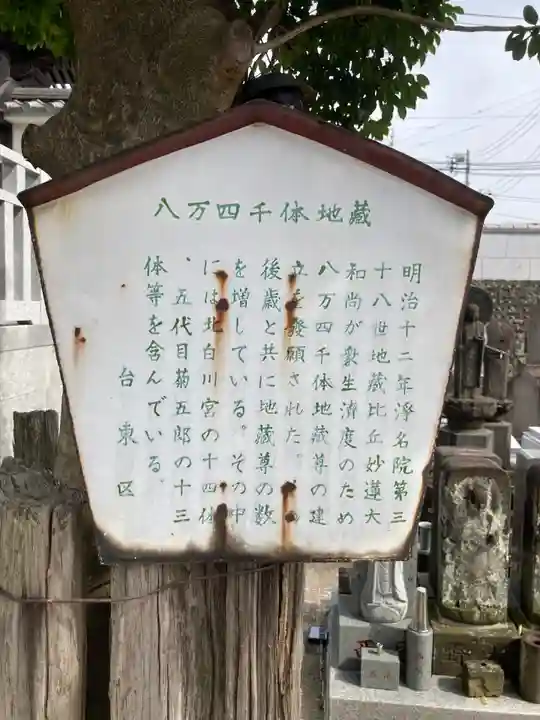 八万四千体地藏
明治十二年淨名院第三
十八世地蔵比丘妙蓮大
和尚が衆生濟度のため
八万四千体地蔵尊の建
立を發願された。
後歳と共に地蔵尊の数
を増している。その中
には北白川宮の十四体
、五代目菊五郎の十三
体等を含んでいる。
台東区